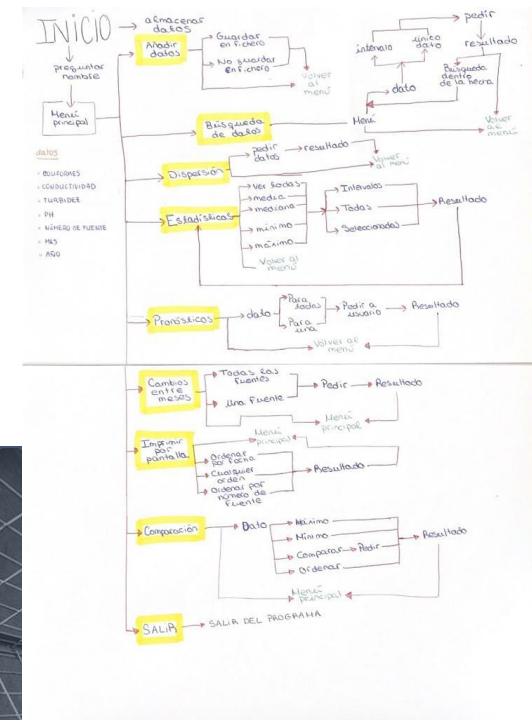 INICIO
preguntar
nombre
Menú
principal
datos
COLIFORMES
CONDUCTIVIDAD
TURBIDEZ
PH
NÚMERO DE FUENTE
MES
AÑO
almacenar
datos
Añadir
datos
Guardar
en fichero
No guardar
en fichero
Volver
al
menú
Búsqueda
de datos
Menú
dato
intervalo
único
dato
pedir
resultado
Búsqueda
dentro
de la hecha
Volver
al
menú
Dispersión
pedir
datos
resultado
Volver
al menú
Estadísticas
Ver todas
media
mediana
mínimo
máximo
Volver al
menú
Intervalos
Todas
Seleccionadas
Resultado
Pronósticos
dato
Para
todas
Para
una
Pedir a
usuario
Resultado
Volver al
menú
Cambios
entre
meses
Todas las
fuentes
Una fuente
Pedir
Resultado
Menú
principal
Imprimir
por
pantalla
Menú
principal
Ordenar
por fecha
Cualquier
orden
Ordenar por
número de
fuente
Resultado
Comparación
Dato
Máximo
Mínimo
Comparar
Pedir
Ordenar
Resultado
Menú
principal
SALIR
SALIR DEL PROGRAMA